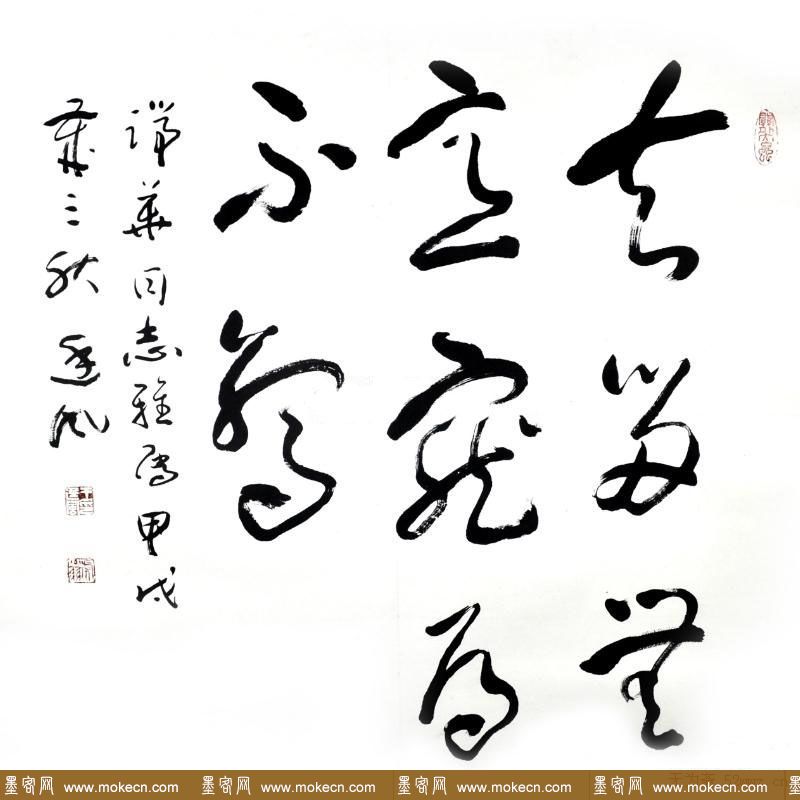 去留無
意寵辱
不驚
瑞華同志雅屬甲戌
歲三秋
墨客网 www.mokecn.com 墨客网 www.mokecn.com 墨客网 www.mokecn.com 墨客网 www.mokecn.com